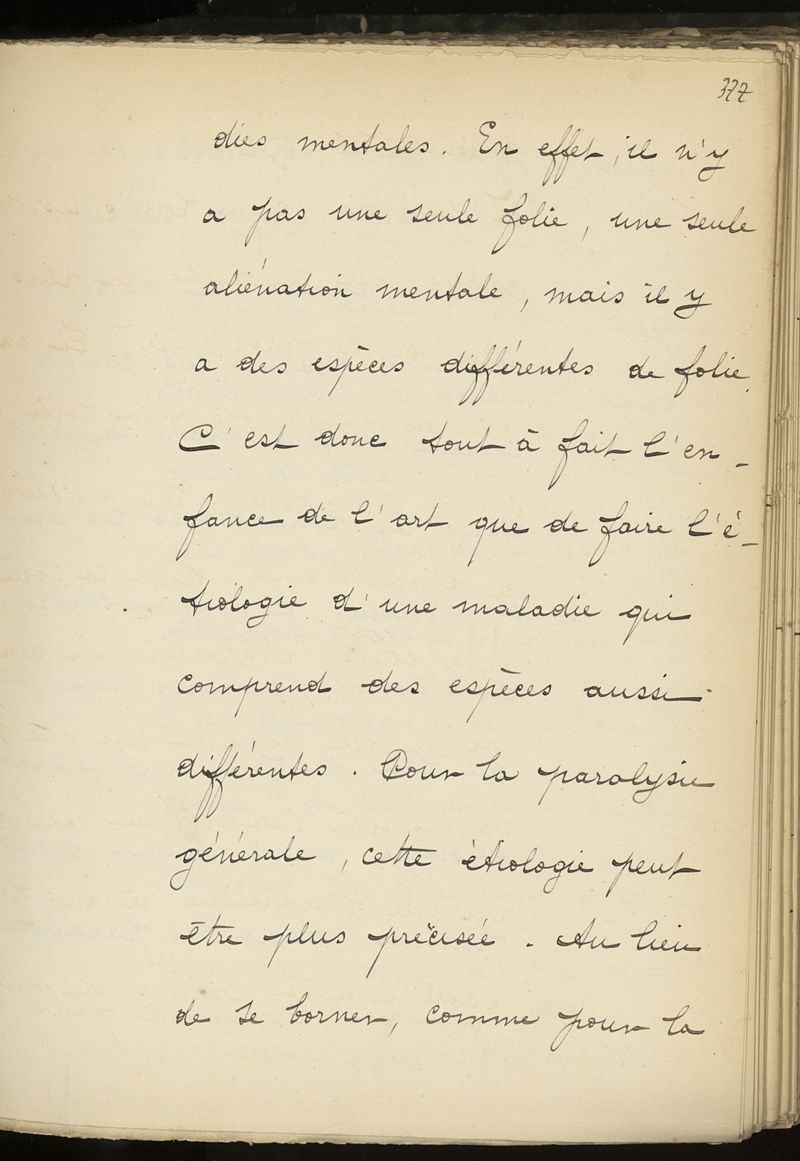 377
dies mentales. En effet, il n'y
a pas une seule folie, une seule
aliénation mentale, mais il y
a des espèces différentes de folie.
C'est donc tout à fait l'en-
fance de l'art que de faire l'é-
tiologie d'une maladie qui
comprend des espèces aussi
différentes. Pour la paralysie
générale, cette étiologie peut
être plus précisée. Au lieu
de se borner, comme pour la